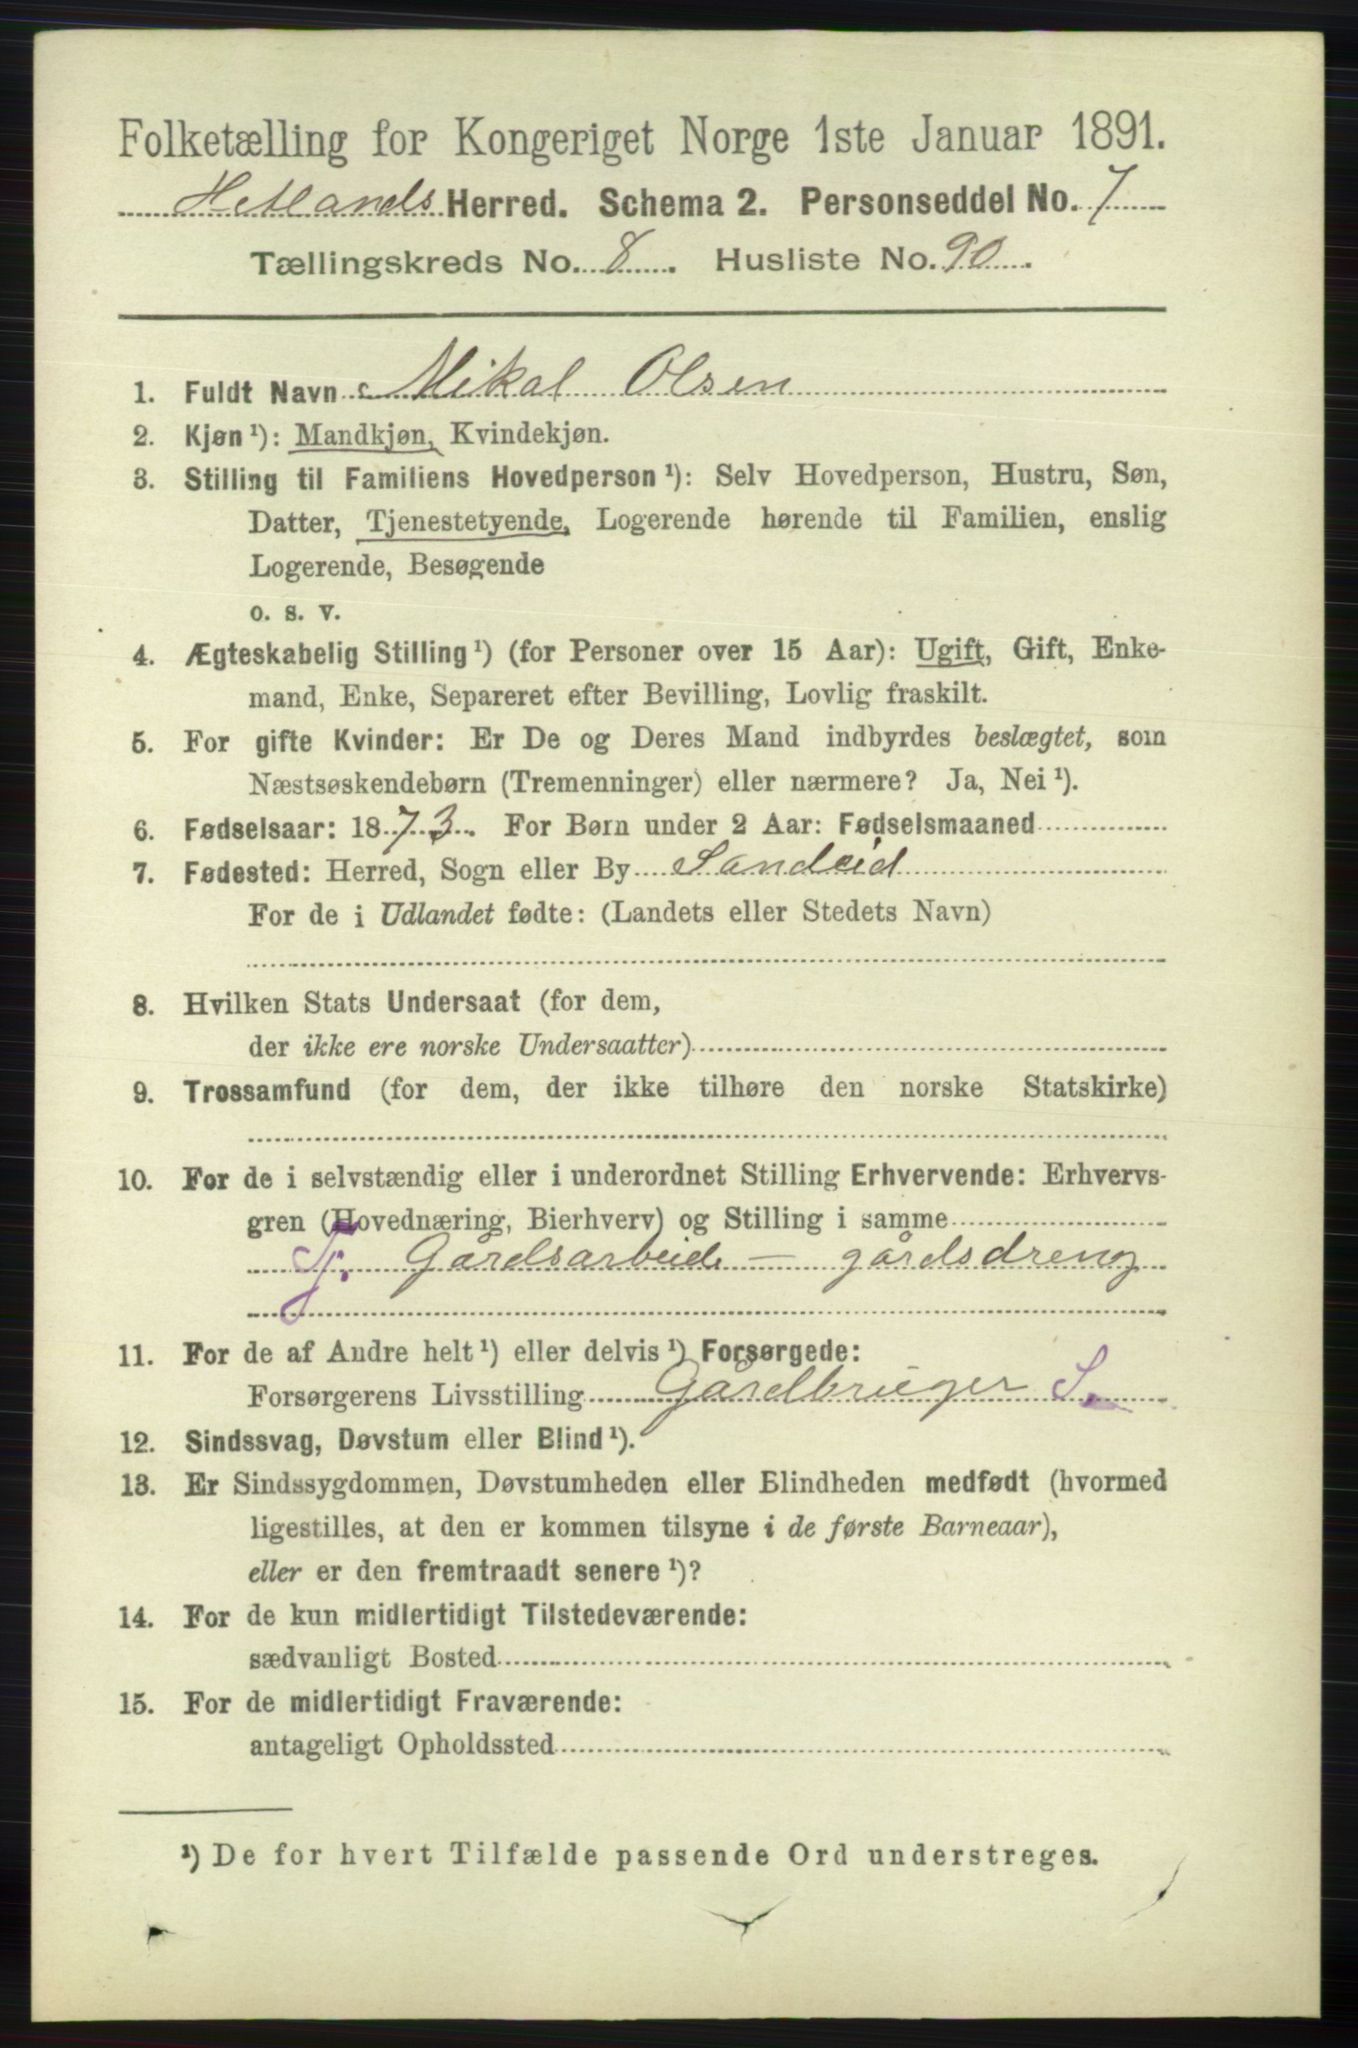 Folketælling for Kongeriget Norge 1ste Januar 1891.
Hetlands Herred. Schema 2. Personseddel No. 7
Tællingskreds No. 8. Husliste No. 90.
1. Fuldt Navn Mikal Olsen
2. Kjøn ¹): Mandkjøn, Kvindekjøn.
3. Stilling til Familiens Hovedperson ¹): Selv Hovedperson, Hustru, Søn,
Datter, Tjenestetyende, Logerende hørende til Familien, enslig
Logerende, Besøgende
o. s. v.
4. Ægteskabelig Stilling ¹) (for Personer over 15 Aar): Ugift, Gift, Enke-
mand, Enke, Separeret efter Bevilling, Lovlig fraskilt.
5. For gifte Kvinder: Er De og Deres Mand indbyrdes beslægtet, som
Næstsøskendebørn (Tremenninger) eller nærmere? Ja, Nei ¹).
6. Fødselsaar: 1873. For Børn under 2 Aar: Fødselsmaaned
7. Fødested: Herred, Sogn eller By Sandeid
For de i Udlandet fødte: (Landets eller Stedets Navn)
8. Hvilken Stats Undersaat (for dem,
der ikke ere norske Undersaatter)
9. Trossamfund (for dem, der ikke tilhøre den norske Statskirke)
10. For de i selvstændig eller i underordnet Stilling Erhvervende: Erhvervs-
gren (Hovednæring, Bierhverv) og Stilling i samme
Tj. Gårdsarbeide - gårdsdreng
11. For de af Andre helt ¹) eller delvis ¹) Forsørgede:
Forsørgerens Livsstilling Gårdbruger S.
12. Sindssvag, Døvstum eller Blind ¹).
13. Er Sindssygdommen, Døvstumheden eller Blindheden medfødt (hvormed
ligestilles, at den er kommen tilsyne i de første Barneaar),
eller er den fremtraadt senere ¹)?
14. For de kun midlertidigt Tilstedeværende:
sædvanligt Bosted
15. For de midlertidigt Fraværende:
antageligt Opholdssted
¹) De for hvert Tilfælde passende Ord understreges.